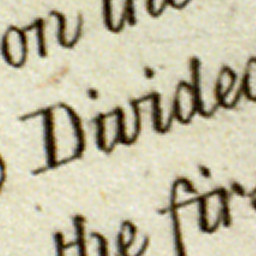 on the
Divided
the fir